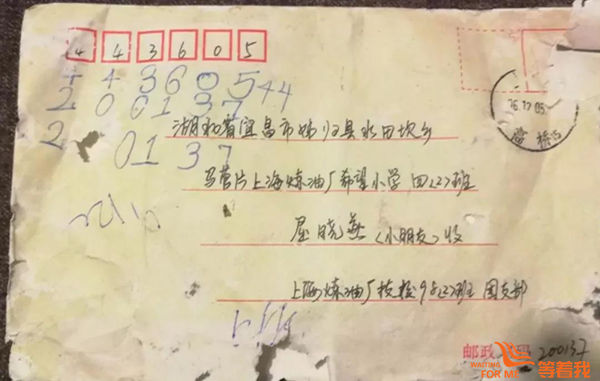 443605
44360544
200137
20137
湖北省宜昌市姊归县水田坝乡
马营片上海炼油厂希望小学 四<2>班
屈晓燕(小朋友)收
上海炼油厂技校95<2>班 团支部
邮政 码 200137
WAITING
FOR ME 等着我